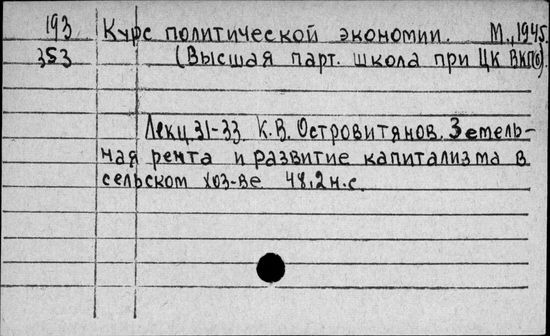 193 Курс политической экономии. М., 1945.
353 (Высшая парт. школа при ЦК ВКП(б).
Лекц. 31-33. К.В. Островитянов. Земель-
ная рента и развитие капитализма в
сельском хоз-ве 48,2 н.с.